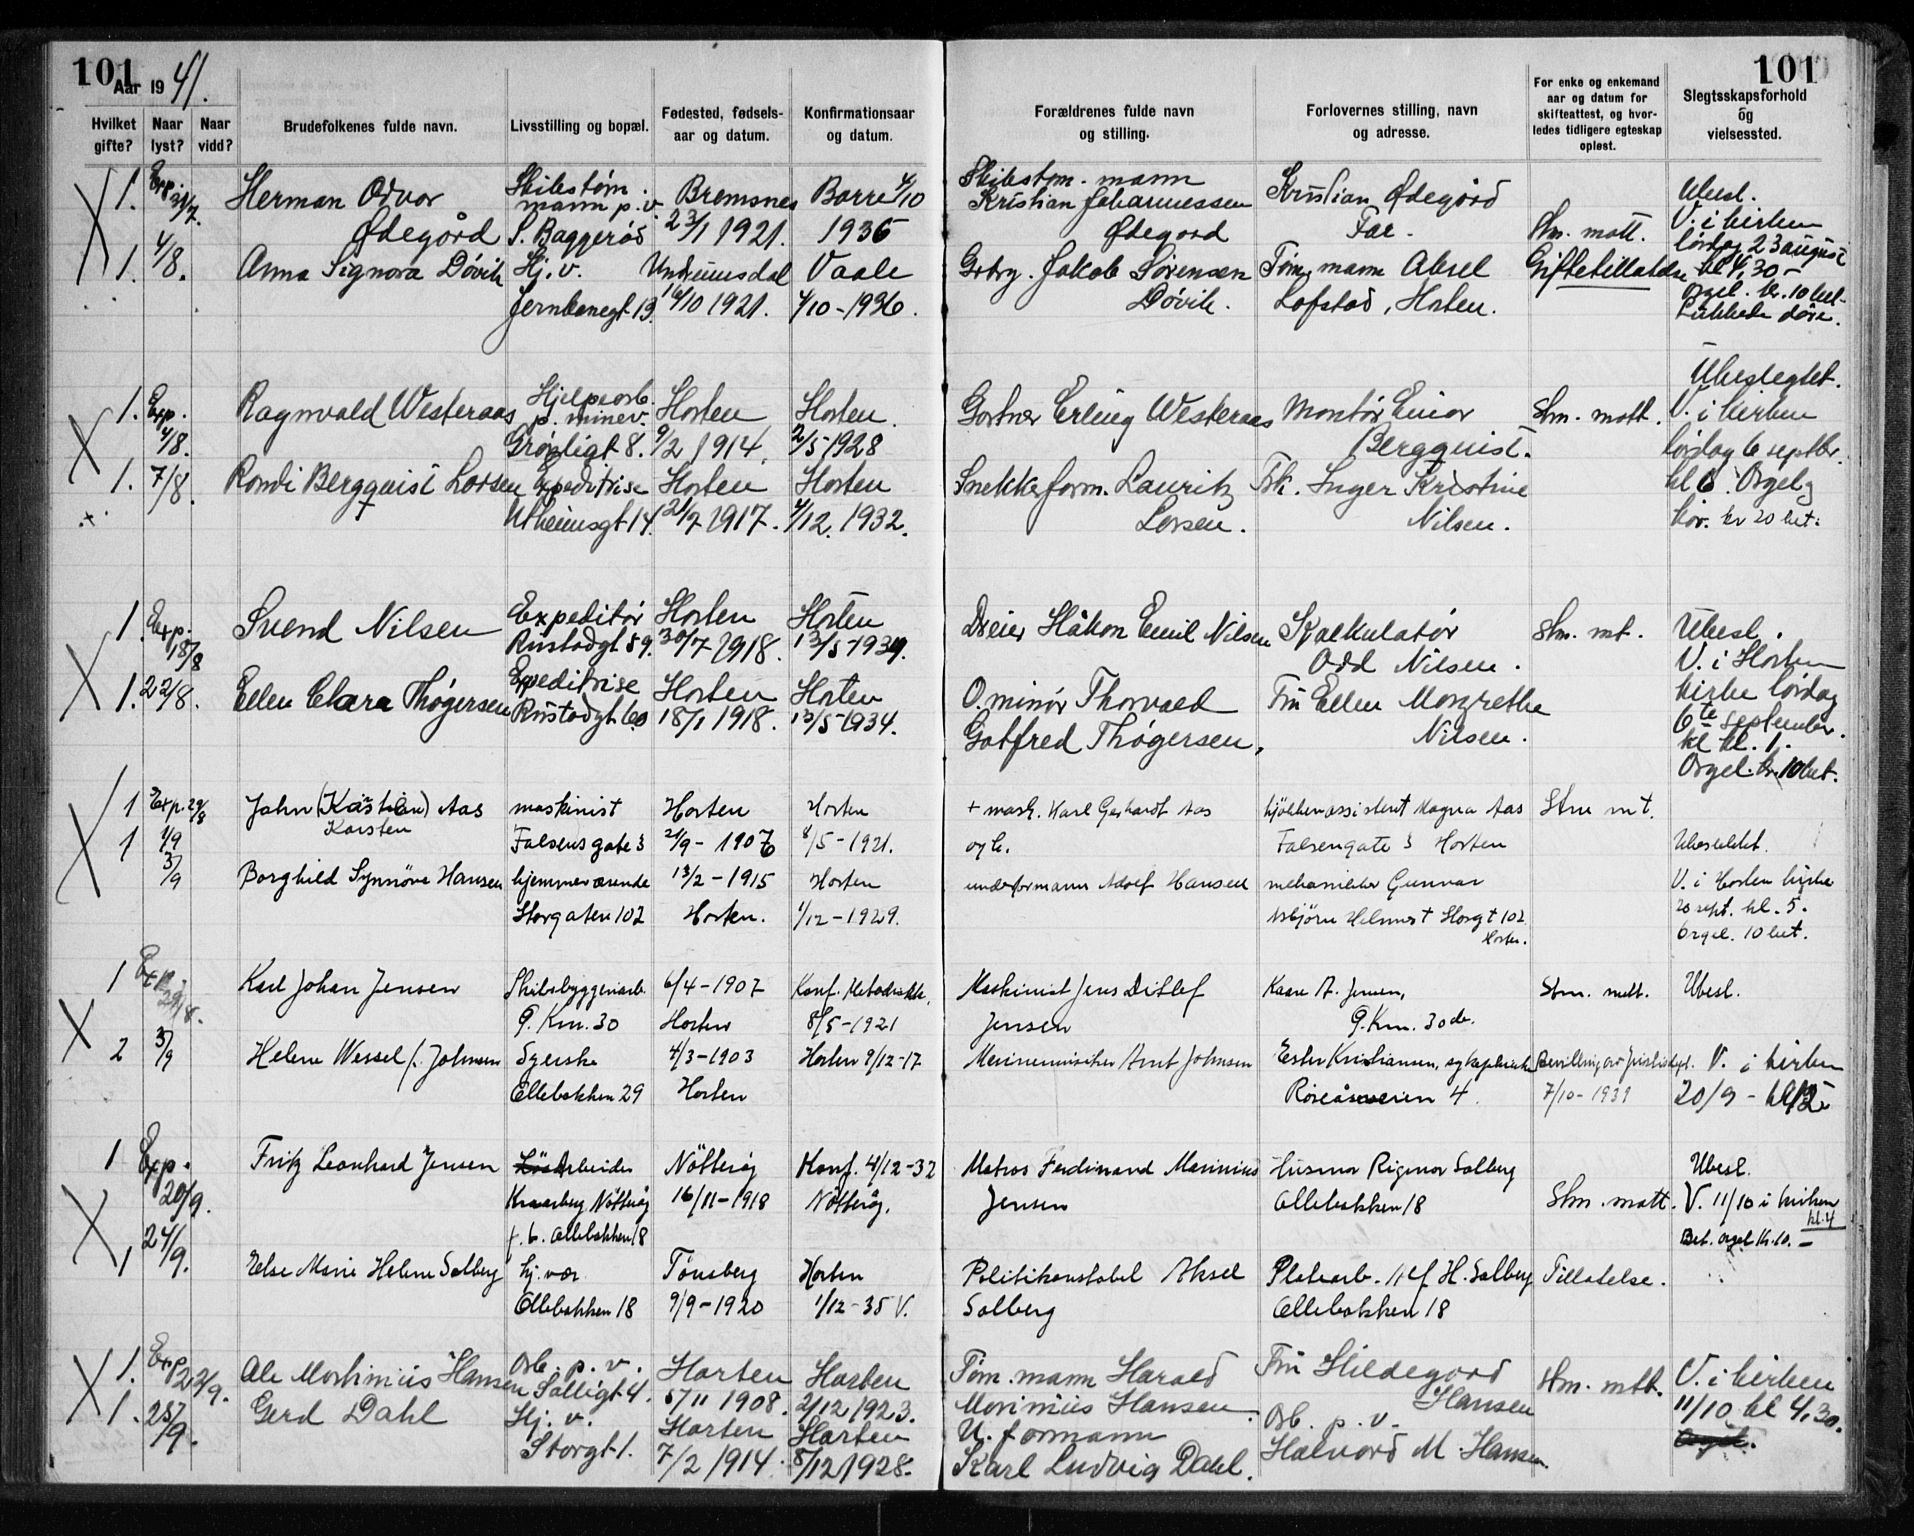 101
Aar 1941.
101
Hvilket gifte?
Naar lyst?
Naar vidd?
Brudefolkenes fulde navn.
Livsstilling og bopæl.
Fødested, fødsels-
aar og datum.
Konfirmationsaar
og datum.
Forældrenes fulde navn
og stilling.
Forlovernes stilling, navn
og adresse.
For enke og enkemand
aar og datum for
skifteattest, og hvor-
ledes tidligere egteskap
opløst.
Slegtsskapsforhold
og
vielsessted.
1. Exp. Herman Odvar Skibstøm. Bremsnes Borre 4/10 Skibstøm. mann Kristian Ødegård Ubesl.
mann p. v. Kristian Johannessen V. i kirken
Ødegård S. Baggerød 23/1 1921. 1936 Ødegård Far. Stm. mott. lørdag 23 august
1. 4/8. Anna Signora Døvik Hj. v. Undrumsdal Vaale Grbr. Jakob Sørensen Tøm. mann Aksel Giftetillatelse kl 4,30 –
Jernbanegt 13. 16/10 1921. 4/10 - 1936. Døvik. Lofstad, Horten. Orgel. kr. 10 bet.
Lukkede døre.
Hjelpearb. Ubeslegtet.
1. Exp. Ragnvald Westeraas p. minev. Horten Horten. Gartner Erling Westeraas Montør Einar Stm. mott. V. i kirken
4/8. Grøgligt 8. 9/2 1914. 2/5-1928 Bergquist. lørdag 6 septbr.
1. 7/8. Randi Bergquist Larsen Expeditrise Horten Horten Snekkerform. Lauritz Frk. Inger Kristine kl 6. Orgel
14. 21/7 1917. 4/12. 1932. Larsen. Nilsen. kr 20 bet.
1. Exp. Svend Nilsen Expeditør Horten Horten Dreier Håkon Emil Nilsen Kalkulatør Stm. mt. Ubesl.
18/8 Rustadgt 59. 30/7 1918. 13/5-1934. Odd Nilsen. V. i Horten
1. 22/8. Ellen Clara Thøgersen Expeditrise Horten Horten O. minør Thorvald Fru Ellen Margrethe kirke lørdag
Rustadgt 60 18/1 1918. 13/5-1934. Gotfred Thøgersen. Nilsen. 6te september.
kl. 1.
Orgel. kr 10 bet.
1 Exp. 29/8 John (Kristian) Aas maskinist Horten Horten + mask. Karl Gerhardt Aas kjøkkenassistent Magna Aas Stm mt.
Karsten
1 1/9 Falsensgate 3 21/9 - 1907 8/5 - 1921. og h. Falsengate 3 Horten Ubeslektet.
3/9 Borghild Synnöve Hansen hjemmeværende 13/2 - 1915 Horten underformann Adolf Hansen mekaniker Gunnar V. i Horten kirke
Storgaten 102 Horten. 1/12 - 1929. Asbjörn Helmest Storgt 102 20 sept. kl. 5.
Horten. Orgel. 10 bet.
1 Exp. 29/8. Karl Johan Jensen Skibsbyggeriarb. 6/4-1907 Konf. Metodistk. Maskinist Jens Ditlef Kaare A. Jensen, Stm. mott. Ubesl.
30 Horten 8/5-1921 Jensen 30 do.
2 3/9 Helene Wessel f. Johnsen Syerske 4/3-1903 Horten 9/12-17 Arnt Johnsen Ester Kristiansen, V. i kirken
Ollebakken 29 Horten 4. 7/10 - 1939 20/9 -
1 Exp. Fritz Leonhard Jensen Arbeider Nötteröy Konf. 4/12-32 Matros Ferdinand Marinius Husmor Rigmor Solberg Ubesl.
20/9. Nötteröy 16/11-1918 Nötteröy. Jensen Ollebakken 18 Stm. mott. V. 11/10 i kirken
kl. 4
f. t. Ollebakken 18 Bet. orgel kr. 10. –
1 24/9. Else Marie Helene Solberg hj. vær. Tönsberg Horten Politikonstabel Aksel Platearb. Alf H. Solberg Tillatelse.
Ollebakken 18 9/9-1920 1/12-35 V. Solberg Ollebakken 18
1. Exp. 22/9. Ole Martinius Hansen Arb. p. v. Horten Horten Tøm. mann Harald Fru Hildegard Stm. mtt. V. i kirken
Solligt 4. 5/11 1908. 2/12 1923. Marinius Hansen. Hansen 11/10 kl 4,30.
1. 25/9. Gerd Dahl Hj. v. Horten Horten U. formann Arb. p. v.
Storgt 1. 7/2 1914. 8/12 1928. Karl Ludvig Dahl. Halvard M. Hansen.